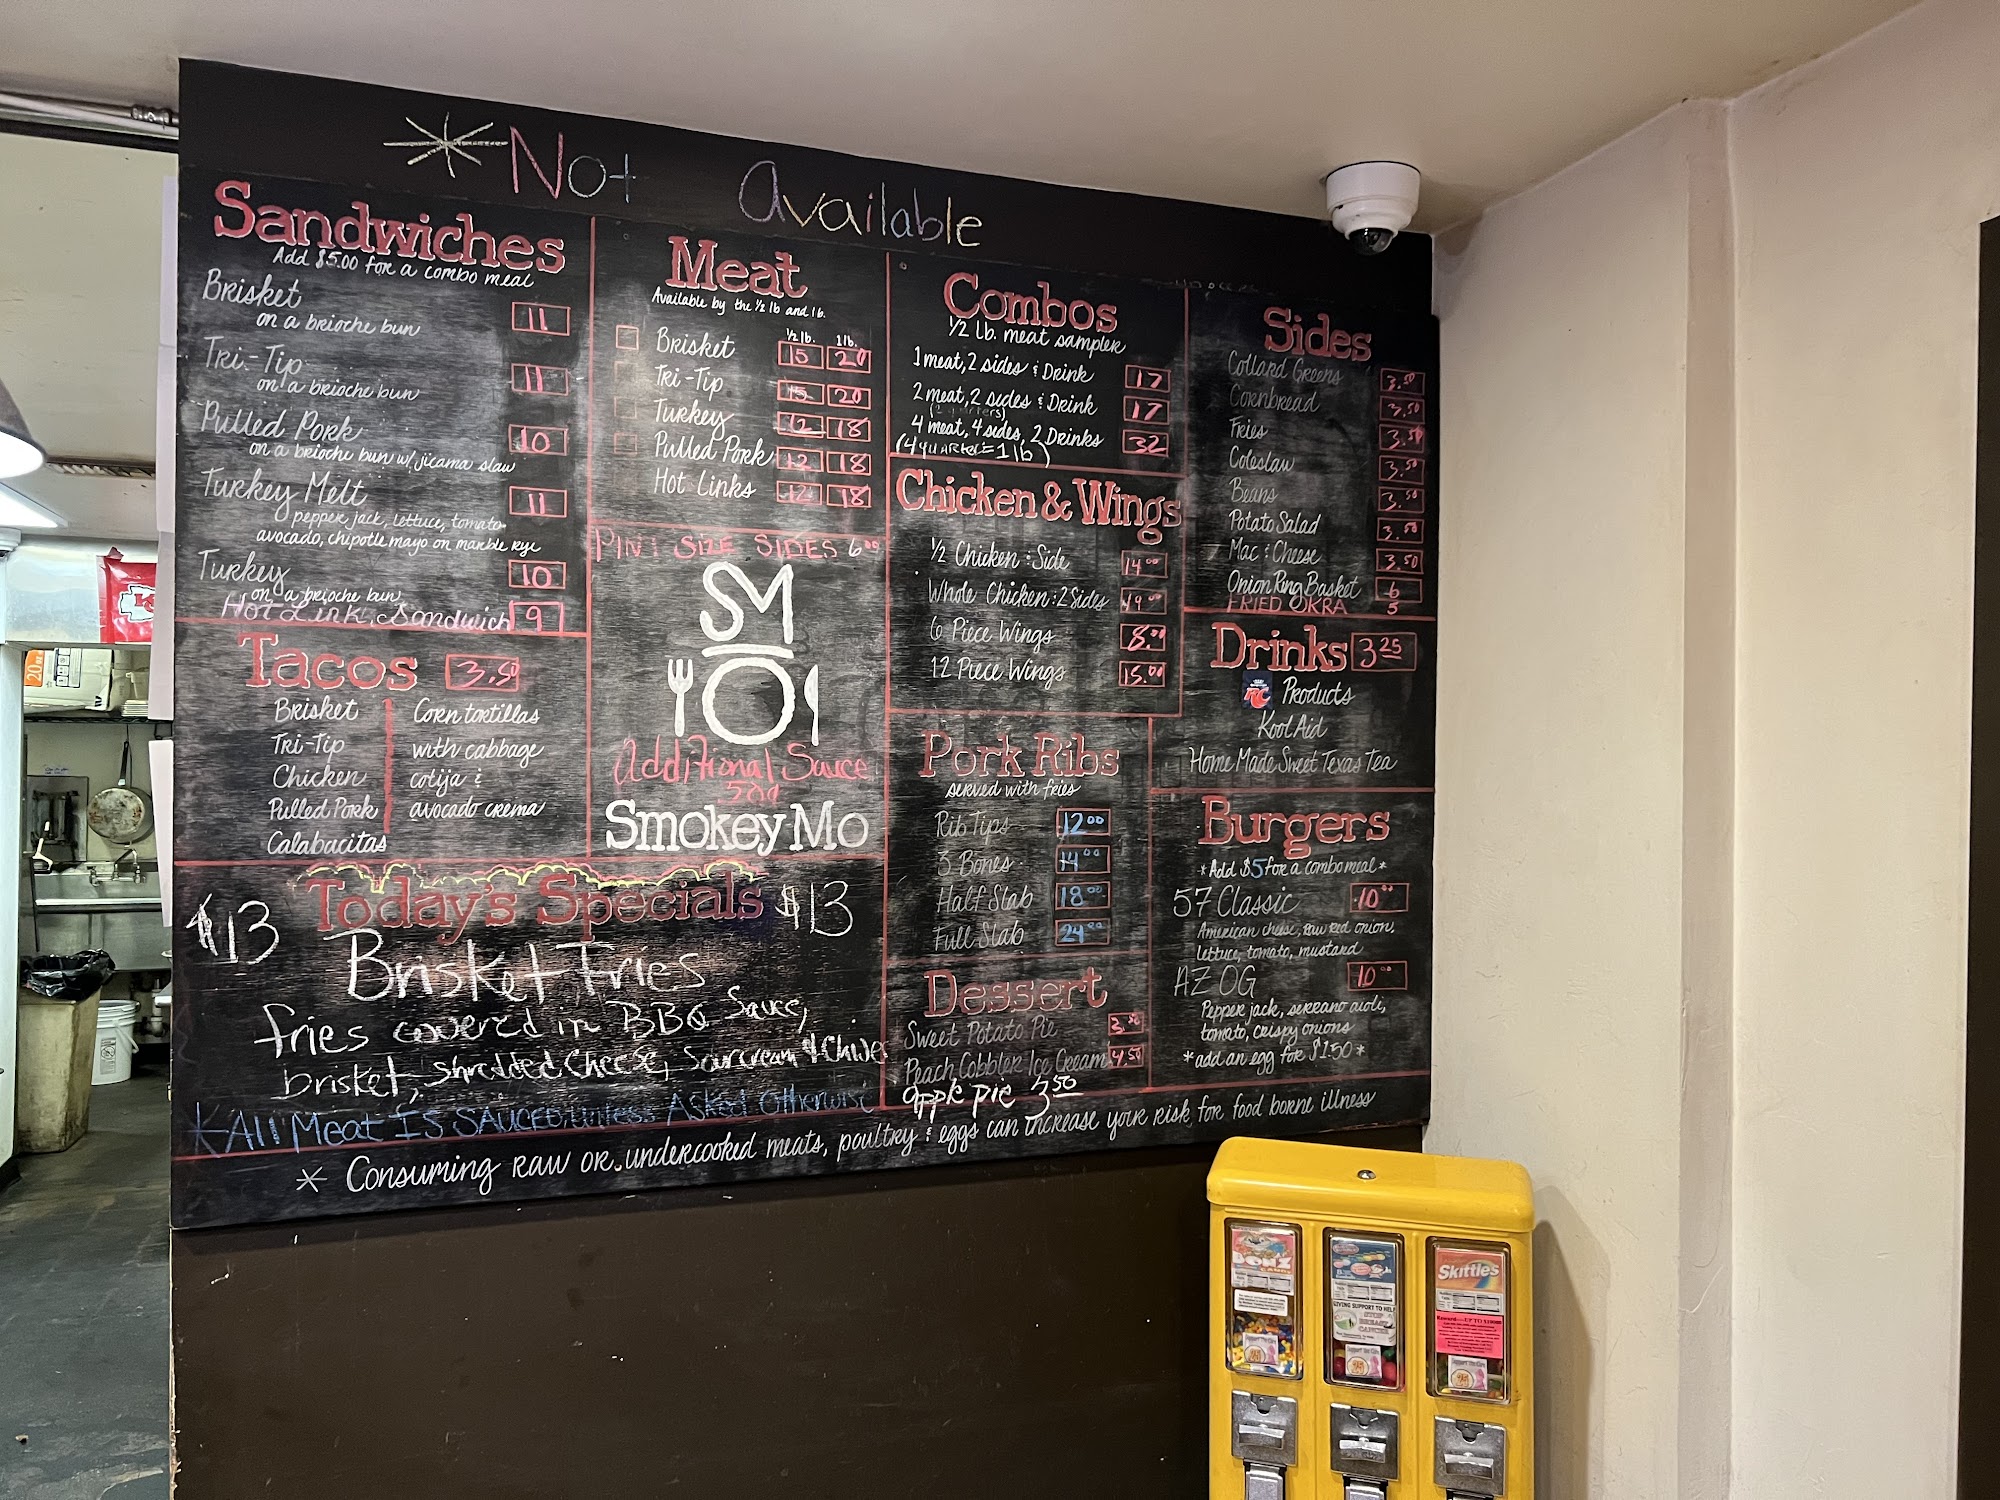 *Not Available
Sandwiches
Add $5.00 for a combo meal
Brisket 11
on a brioche bun
Tri-Tip 11
on a brioche bun
Pulled Pork 10
on a brioche bun w/ jicama slaw
Turkey Melt 11
pepper jack, lettuce, tomato
avocado, chipotle mayo on marble rye
Turkey 10
on a brioche bun
Hot Link Sandwich 9
Tacos 3.50
Brisket
Tri-Tip
Chicken
Pulled Pork
Calabacitas
Corn tortillas
with cabbage
cotija &
avocado crema
Meat
Available by the 1/2 lb and lb.
1/2 lb. 1 lb.
Brisket 15 20
Tri-Tip 15 20
Turkey 12 18
Pulled Pork 12 18
Hot Links 12 18
PINT SIZE SIDES 6.00
SM
Additional Sauce
50¢
Smokey Mo
Combos
1/2 Lb. meat sampler
1 meat, 2 sides & Drink 17
2 meat, 2 sides & Drink 17
4 meat, 4 sides, 2 Drinks 32
(4 quarter = 1 lb)
Chicken & Wings
1/2 Chicken & Side 14.00
Whole Chicken & 2 Sides 19.00
6 Piece Wings 8.00
12 Piece Wings 15.00
Pork Ribs
served with fries
Rib Tips 12.00
3 Bones 14.00
Half Slab 18.00
Full Slab 24.00
Dessert
Sweet Potato Pie 3.50
Peach Cobbler Ice Cream 4.50
apple pie 3.50
Sides
Collard Greens 3.50
Cornbread 3.50
Fries 3.50
Coleslaw 3.50
Beans 3.50
Potato Salad 3.50
Mac & Cheese 3.50
Onion Ring Basket 6
FRIED OKRA 5
Drinks 3.25
RC Products
Kool Aid
Home Made Sweet Texas Tea
Burgers
*Add $5 for a combo meal*
57 Classic 10.00
American cheese, raw red onion,
lettuce, tomato, mustard
AZ OG 10.00
Pepper jack, serrano aioli,
tomato, crispy onions
*add an egg for $1.50*
$13 Today's Specials $13
Brisket Fries
fries covered in BBQ Sauce,
brisket, shredded cheese, sourcream & Chive
*All Meat IS SAUCED, unless Asked Otherwise
* Consuming raw or undercooked meats, poultry & eggs can increase your risk for food borne illness
Skittles
GIVING SUPPORT TO HELP
STOP
BREAST
CANCER